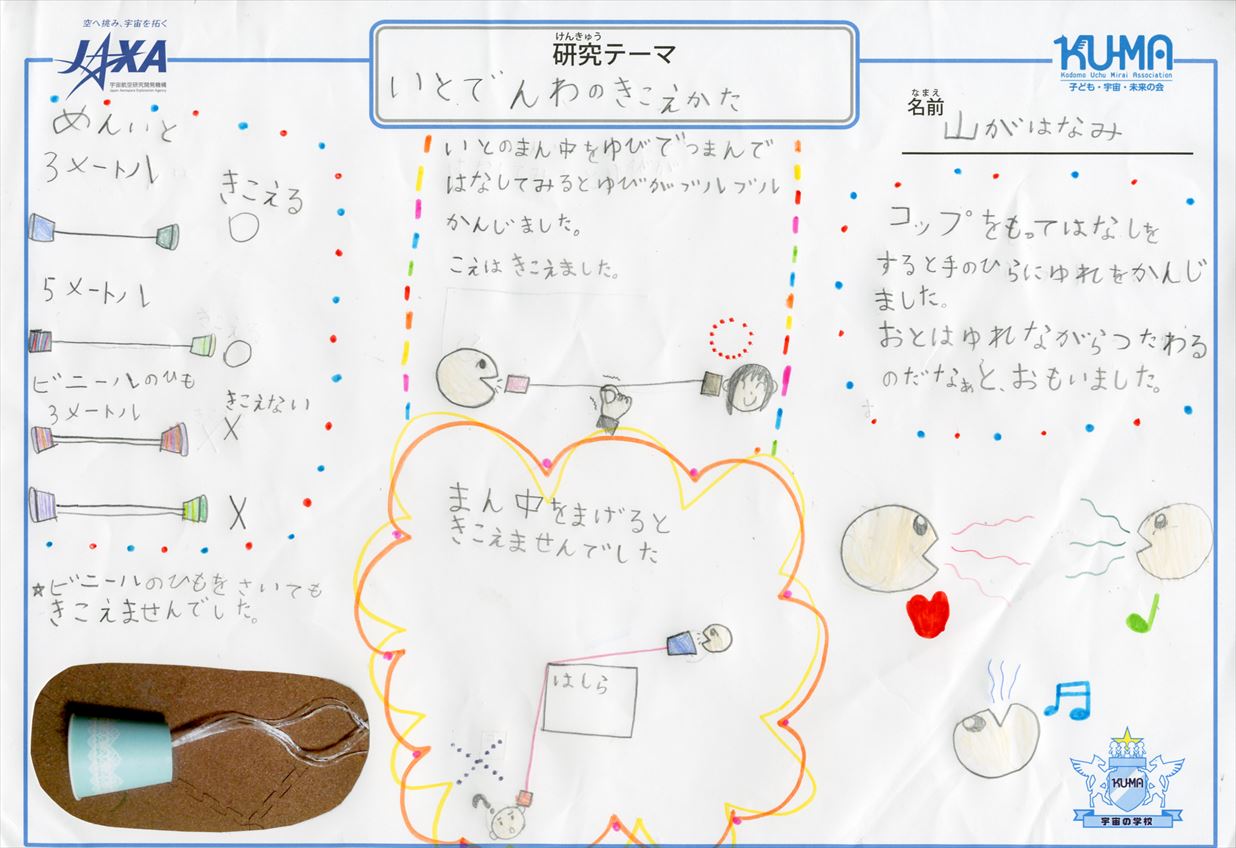 空へ挑み、宇宙を拓く
JAXA
宇宙航空研究開発機構
Japan Aerospace Exploration Agency
けんきゅう
研究テーマ
いとでんわのきこえかた
KU-MA
Kodomo Uchu Mirai Association
子ども・宇宙・未来の会
なまえ
名前
山がはなみ
めんいと
3メートル
きこえる
○
5メートル
○
ビニールのひも
3メートル
きこえない
×
×
☆ビニールのひもをさいても
きこえませんでした。
いとのまん中をゆびでつまんで
はなしてみるとゆびがブルブル
かんじました。
こえはきこえました。
まん中をまげると
きこえませんでした
はしら
コップをもってはなしを
すると手のひらにゆれをかんじ
ました。
おとはゆれながらつたわる
のだなぁと、おもいました。
KU-MA
宇宙の学校